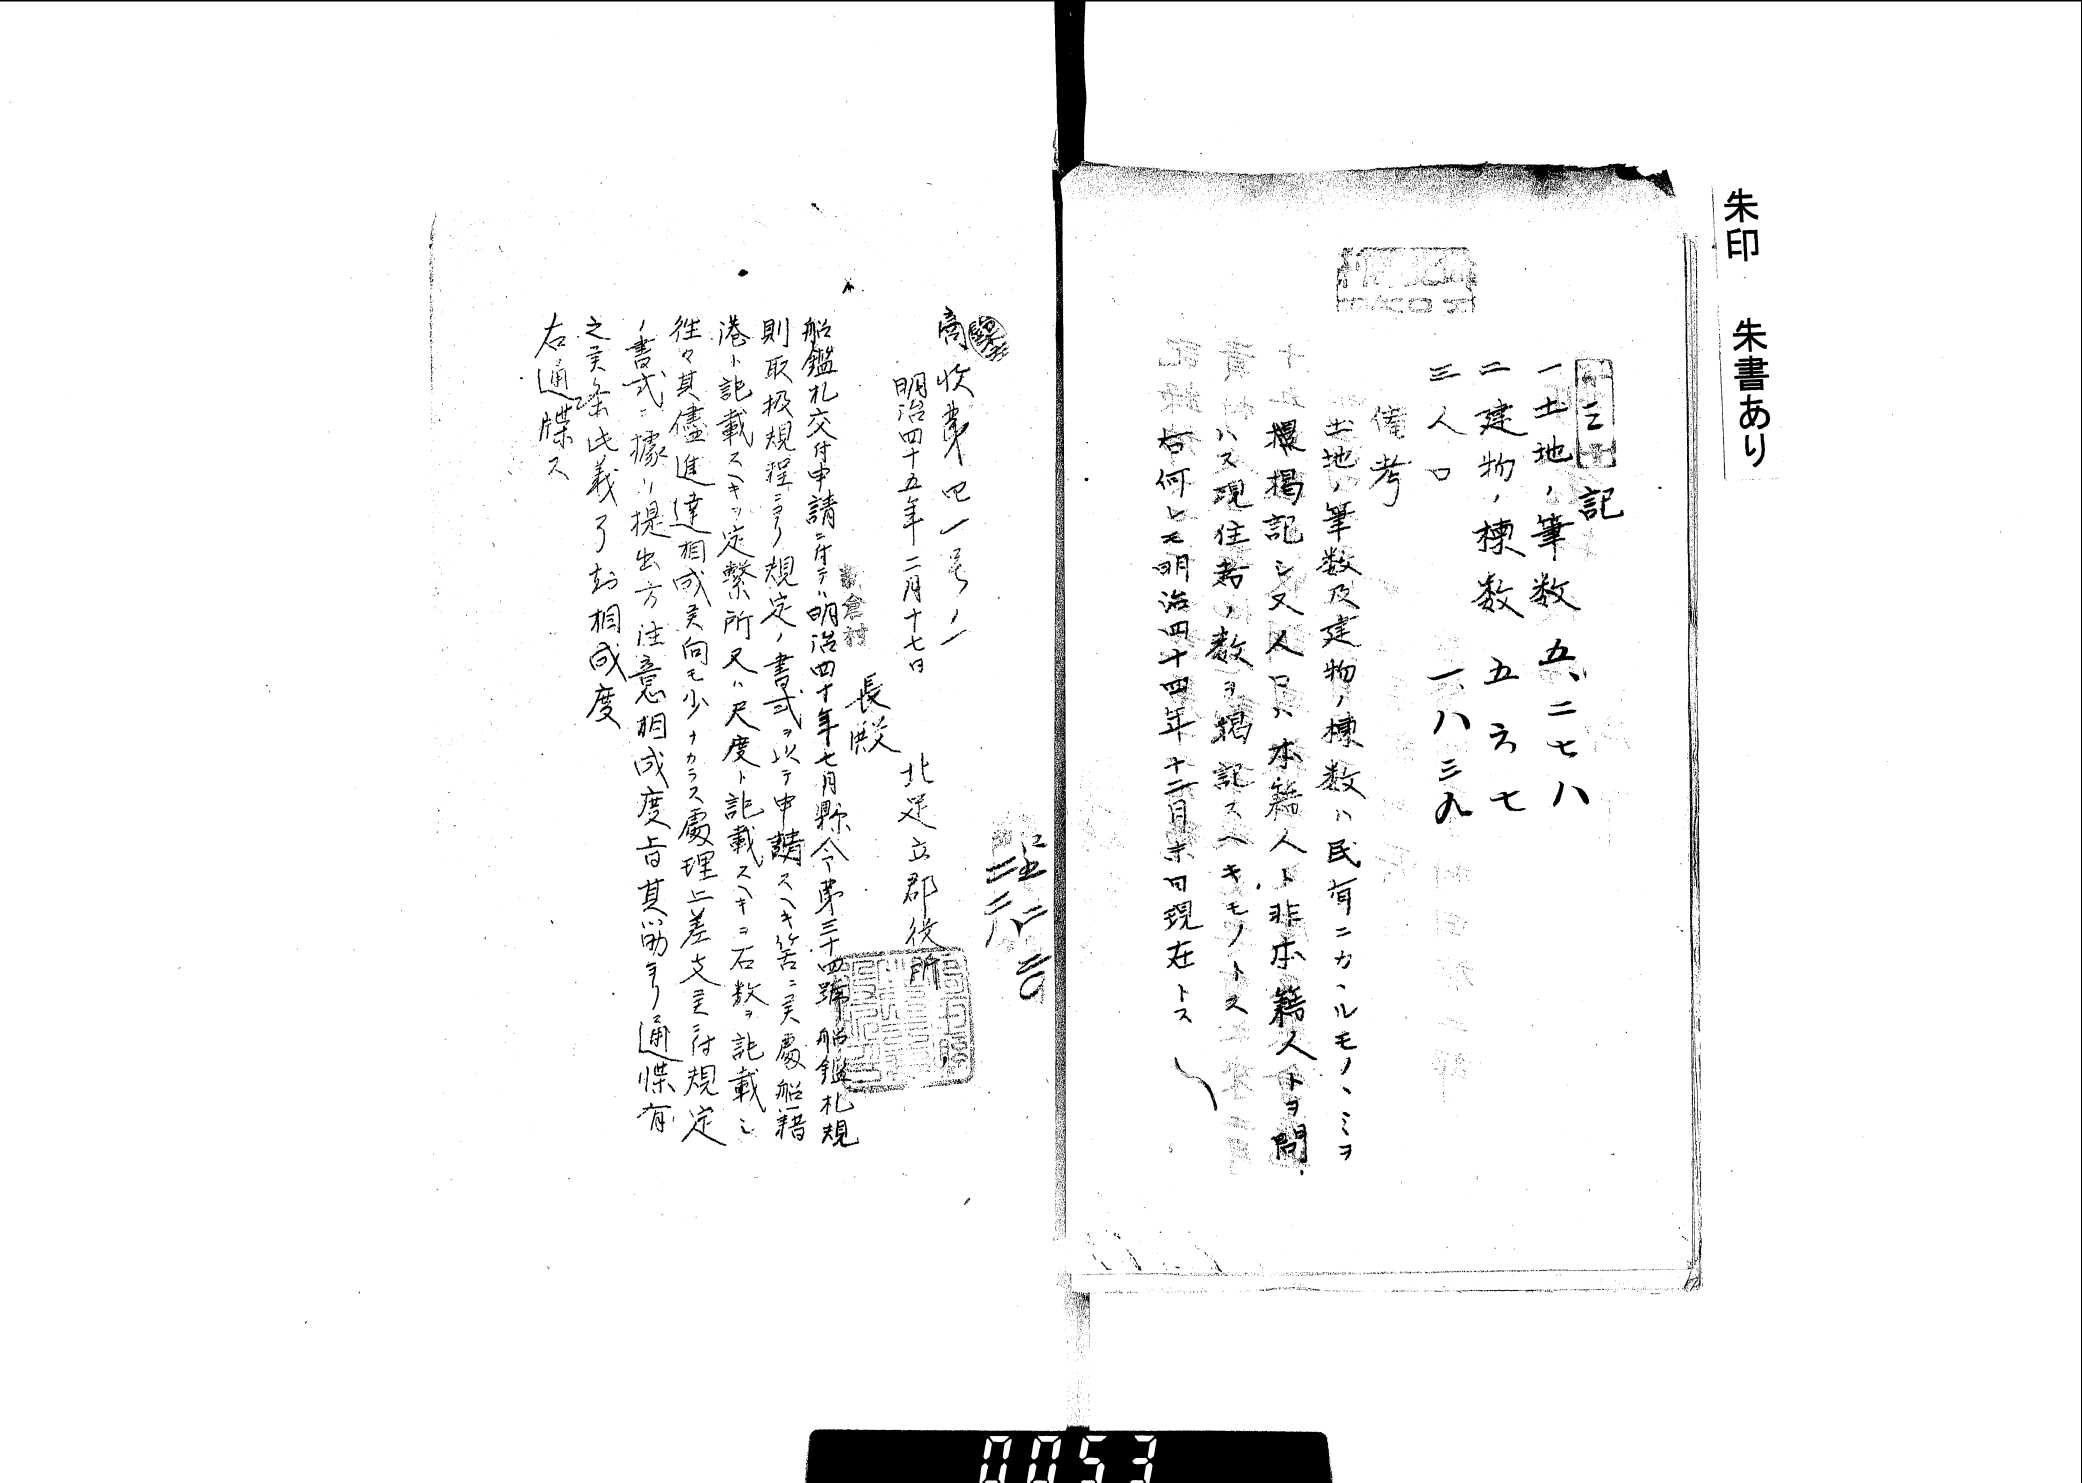 朱印　朱書あり
記
一土地ノ筆数　五、二七八
二建物ノ棟数　五六七
三人口　一、八三九
備考
土地ノ筆数及建物ノ棟数ハ民有ニカヽルモノヽミヲ
掲記シ又人口ハ本籍人ト非本籍人トヲ問
ハス現住者ノ数ヲ掲記スヘキモノトス
右何レモ明治四十四年十二月末日現在トス
商收第四一号ノ一
明治四十五年二月十七日
北足立郡役所
新倉村長殿
船鑑札交付申請ニ付テハ明治四十年七月縣令第三十四號船鑑札規
則取扱規程ニヨリ規定ノ書式ヲ以テ申請スヘキ筈ニ候處船籍
港ト記載スヘキヲ定繋所又ハ尺度ト記載スヘキヲ石数ヲ記載シ
徃々其儘進達相成候向モ少ナカラス處理上差支候ニ付規定
ノ書式ニ據リ提出方注意相成度旨其筋ヨリ通牒有
之候条此義了知相成度
右通牒ス
0053